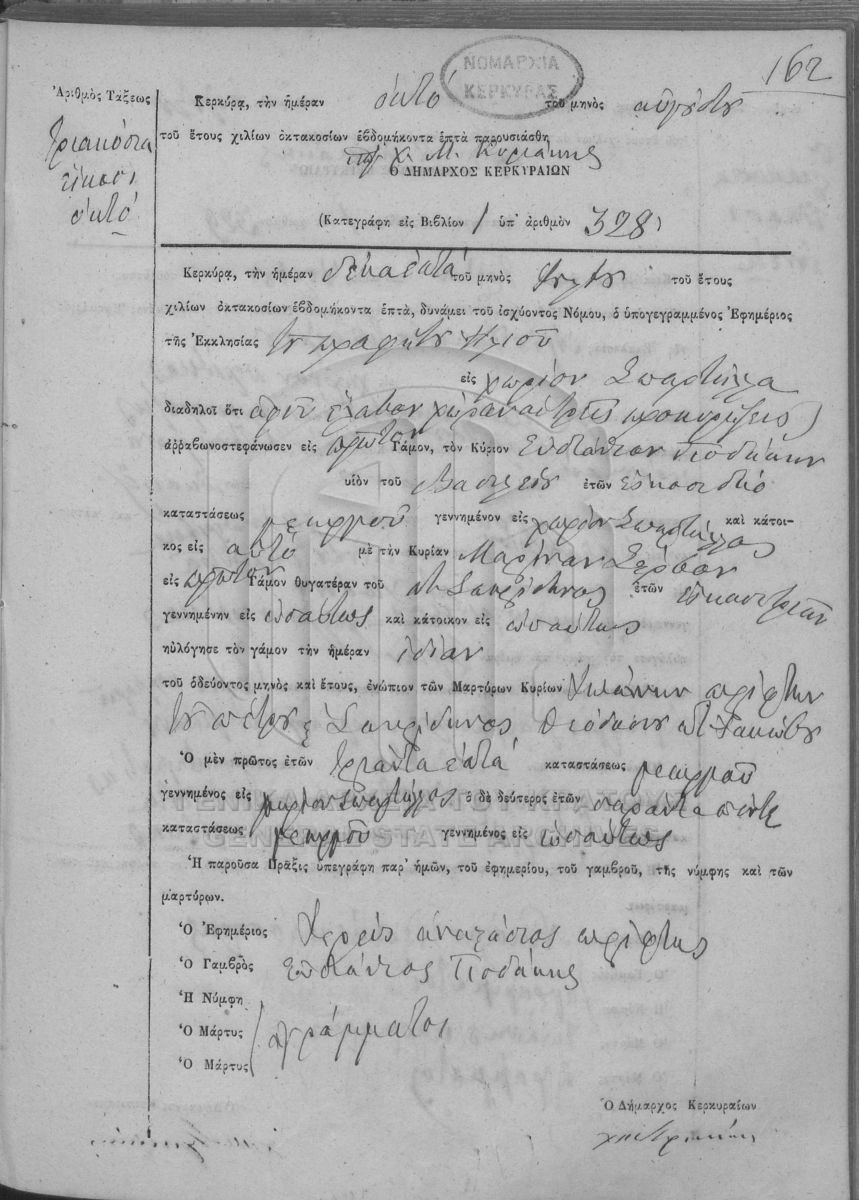 162
ΝΟΜΑΡΧΙΑ
ΚΕΡΚΥΡΑΣ
Ἀριθμὸς Τάξεως
τριακόσια
εἴκοσι
ὀκτό
Κερκύρᾳ, τὴν ἡμέραν ὀκτό τοῦ μηνὸς αὐγούστου
τοῦ ἔτους χιλίων ὀκτακοσίων ἑβδομήκοντα ἑπτὰ παρουσιάσθη
Ο ΔΗΜΑΡΧΟΣ ΚΕΡΚΥΡΑΙΩΝ
(Κατεγράφη εἰς Βιβλίον 1 ὑπ' ἀριθμὸν 328)
Κερκύρᾳ, τὴν ἡμέραν δεκαεπτά τοῦ μηνὸς τοῦ ἔτους
χιλίων ὀκτακοσίων ἑβδομήκοντα ἑπτὰ, δυνάμει τοῦ ἰσχύοντος Νόμου, ὁ ὑπογεγραμμένος Ἐφημέριος
τῆς Ἐκκλησίας τοῦ προφήτου Ἠλιοῦ
εἰς χωρίον Σπαρτίλλα
διαδηλοῖ ὅτι ἀφοῦ ἔλαβον χώραν αἱ τρεῖς προκηρύξεις
ἀρραβωνοστεφάνωσεν εἰς πρῶτον Γάμον, τὸν Κύριον Εὐστάθιον
υἱὸν τοῦ Βασιλείου ἐτῶν εἰκοσιδύο
καταστάσεως γεωργοῦ γεννημένον εἰς χωρίον Σπαρτίλλας καὶ κάτοι-
κος εἰς αὐτό μὲ τὴν Κυρίαν Μαρίναν
εἰς πρῶτον Γάμον θυγατέραν τοῦ Σπυρίδωνος ἐτῶν εἰκοσιτριῶν
γεννημένην εἰς ὡσαύτως καὶ κάτοικον εἰς ὡσαύτως
ηὐλόγησε τὸν γάμον τὴν ἡμέραν ἰδίαν
τοῦ ὁδεύοντος μηνὸς καὶ ἔτους, ἐνώπιον τῶν Μαρτύρων Κυρίων Ἰωάννην πρίφτην
τοῦ πέτρου ξ Σπυρίδωνος
Ὁ μὲν πρῶτος ἐτῶν τριάντα επτά καταστάσεως γεωργοῦ
γεννημένος εἰς χωρίον Σπαρτίλλας ὁ δὲ δεύτερος ἐτῶν σαράντα πέντε
καταστάσεως γεωργοῦ γεννημένος εἰς ὡσαύτως
ΓΕΝΙΚΑ ΑΡΧΕΙΑ ΤΟΥ ΚΡΑΤΟΥΣ
GENERAL STATE ARCHIVES
Ἡ παροῦσα Πρᾶξις ὑπεγράφη παρ' ἡμῶν, τοῦ ἐφημερίου, τοῦ γαμβροῦ, τῆς νύμφης καὶ τῶν
μαρτύρων.
Ὁ Ἐφημέριος Ἱερεύς ἀναστάσιος πρίφτης
Ὁ Γαμβρὸς Εὐστάθιος
Ἡ Νύμφη
Ὁ Μάρτυς ἀγράμματοι
Ὁ Μάρτυς
Ὁ Δήμαρχος Κερκυραίων